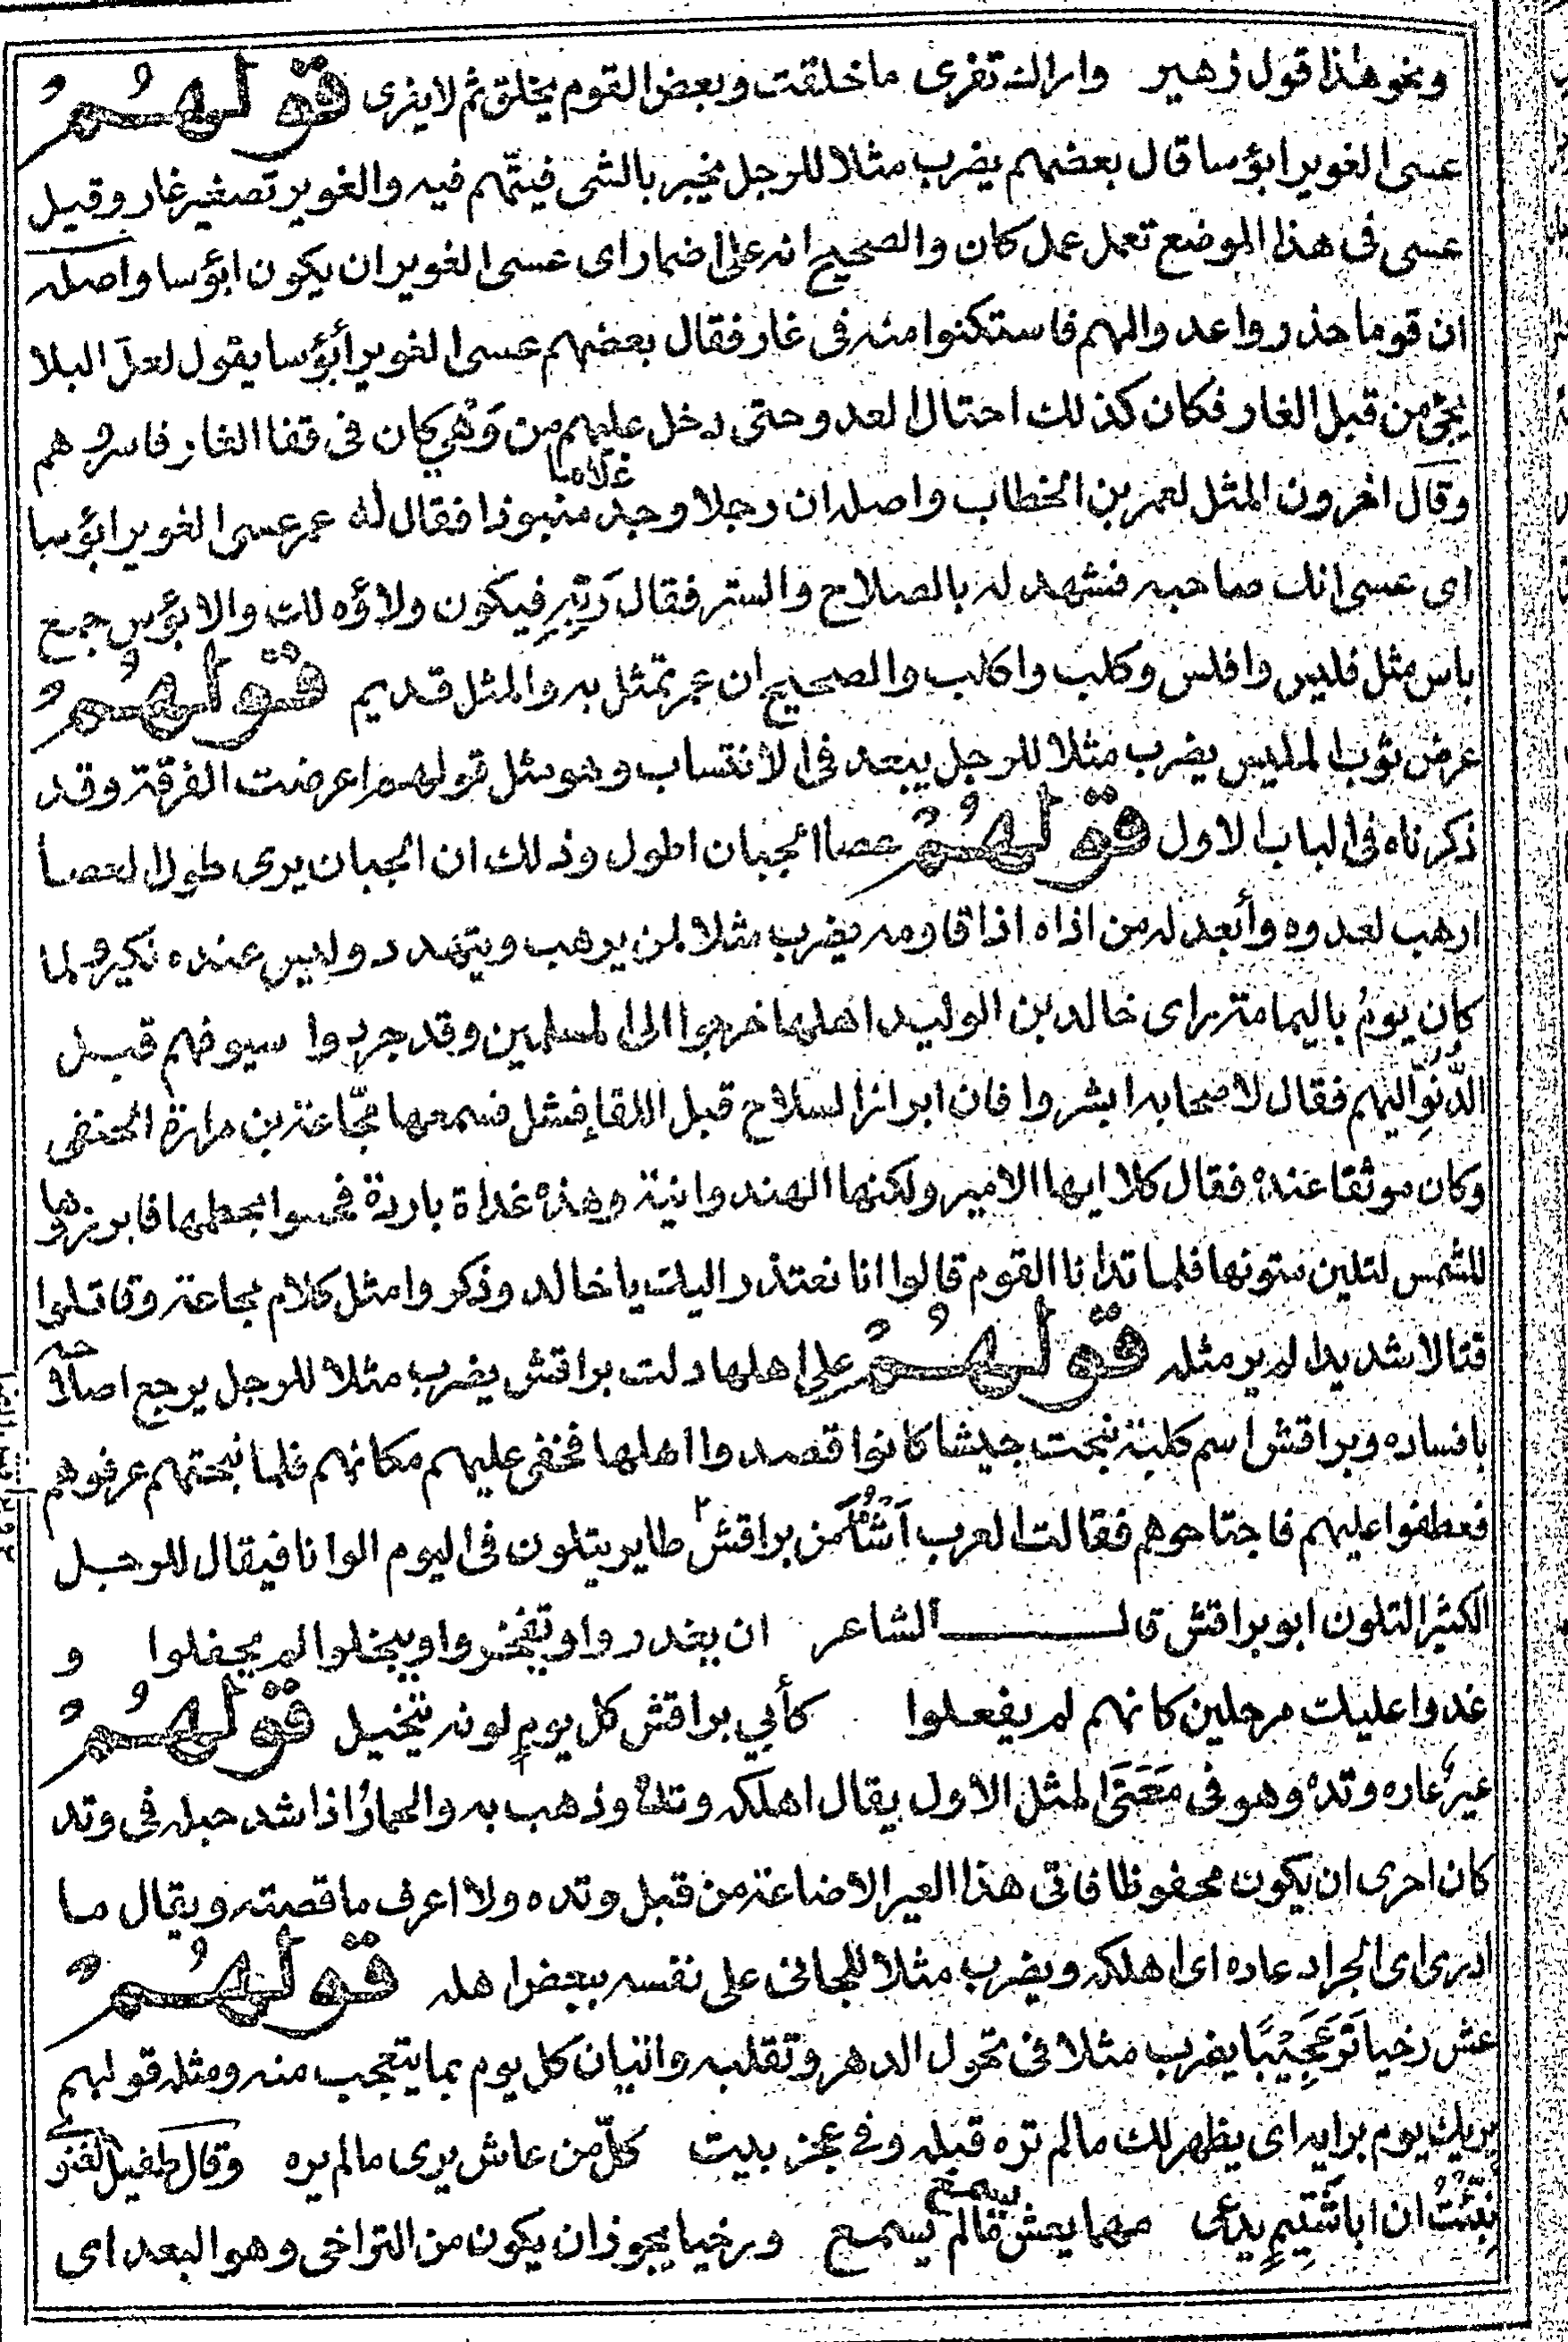 ونحو هذا قول زهير واراك تفرى ما خلقت وبعض القوم يخلق ثم لا يفرى قولهم
عسى الغوير ابؤسا قال بعضهم يضرب مثلا للرجل يخبر بالشى فيتهم فيه والغوير تصغير غار وقيل
عسى فى هذا الموضع تعمل عمل كان والصحيح انه على اضمار اى عسى الغوير ان يكون ابؤسا واصله
ان قوما حذروا عدوالهم فاستكنوا منه فى غار فقال بعضهم عسى الغوير أبؤسا يقول لعل البلا
يجئ من قبل الغار فكان كذلك احتال العدو حتى دخل عليهم من وَهْيٍ كان فى قفا الغار فاسروهم
وقال اخرون المثل لعمر بن الخطاب واصله ان رجلا وجد غلاما منبوذا فقال له عمر عسى الغوير ابؤسا
اى عسى انك صاحبه فشهد له بالصلاح والستر فقال رَبِّهِ فيكون ولاؤه لك والابؤس جمع
باس مثل فلس وافلس وكلب واكلب والصحيح ان عمر تمثل به والمثل قديم قولهم
عرض ثوب الملبس يضرب مثلا للرجل يبعد فى الانتساب وهو مثل قولهم اعرضت القرفة وقد
ذكرناه فى الباب الاول قولهم عصا الجبان اطول وذلك ان الجبان يرى طول العصا
ارهب لعدوه وأبعد له من اذاه اذا قاومه يضرب مثلا لمن يرهب ويتهدد وليس عنده نكير ولما
كان يوم باليمامة راى خالد بن الوليد اهلها خرجوا الى المسلمين وقد جردوا سيوفهم قبل
الدُّنُوِّ اليهم فقال لاصحابه ابشروا فان ابراز السلاح قبل اللقا فشل فسمعها مجّاعة بن مرارة الحنفى
وكان موثقا عنده فقال كلا ايها الامير ولكنها الهندوانية وهذه غداة باردة فخسوا بحطمها فابرزوها
للشمس لتلين متونها فلما تدانا القوم قالوا انا نعتذر اليك يا خالد وذكروا مثل كلام مجاعة وقاتلوا
قتالا شديدا لم ير مثله قولهم على اهلها دلت براقش يضرب مثلا للرجل يرجع اصلاحه
بافساده وبراقش اسم كلبة نبحت جيشا كانوا قصدوا اهلها فخفى عليهم مكانهم فلما نبحتهم عرفوهم
فعطفوا عليهم فاجتاحوهم فقالت العرب اَشْأَمُ من براقش طاير يتلون فى اليوم الوانا فيقال للرجل
الكثير التلون ابو براقش قال الشاعر ان يغدروا او يفخروا او يبخلوا لم يحفلوا و
غدوا عليك مرجلين كانهم لم يفعلوا كأبي براقش كل يومٍ لونه يتخيل قولهم
عير عاره وتده وهو فى مَعْنَى المثل الاول يقال اهلكه وتله وذهب به والحمار اذا شد حبله فى وتد
كان احرى ان يكون محفوظا فاتى هذا العير الاضاعة من قبل وتده ولا اعرف ما قصته ويقال ما
ادرى اى الجراد عاده اى اهلكه ويضرب مثلا للجانى على نفسه ببعض اهله قولهم
عش رخيا تَرَ عَجِيْبًا يضرب مثلا فى تحول الدهر وتقلبه واتيان كل يوم بما يتعجب منه ومثله قولهم
يريك يوم برايه اى يظهر لك ما لم تره قبله وفي عجز بيت كلّ من عاش يرى ما لم يره وقال طفيل الغنوى
نُبِّئْتُ ان ابا شَتِيمٍ يدعى مهما يعش يسمع بما لم يسمع ورخيا يجوز ان يكون من التراخى وهو البعد اى